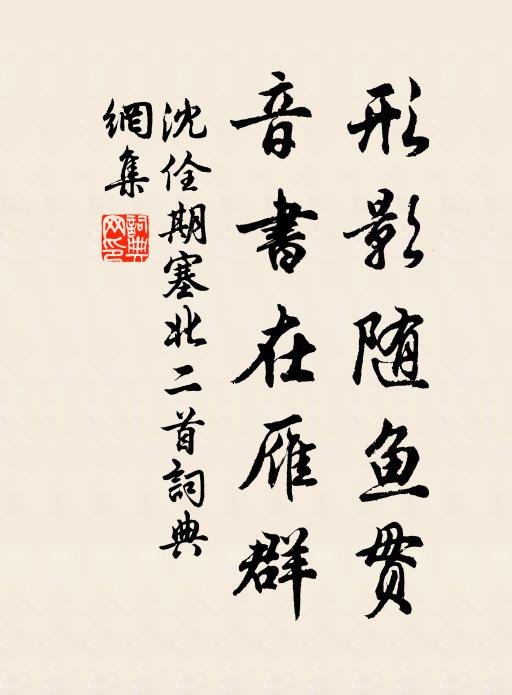 形影随鱼贯
音書在雁群
沈佺期塞北二首詞典
網集
詞典
网印